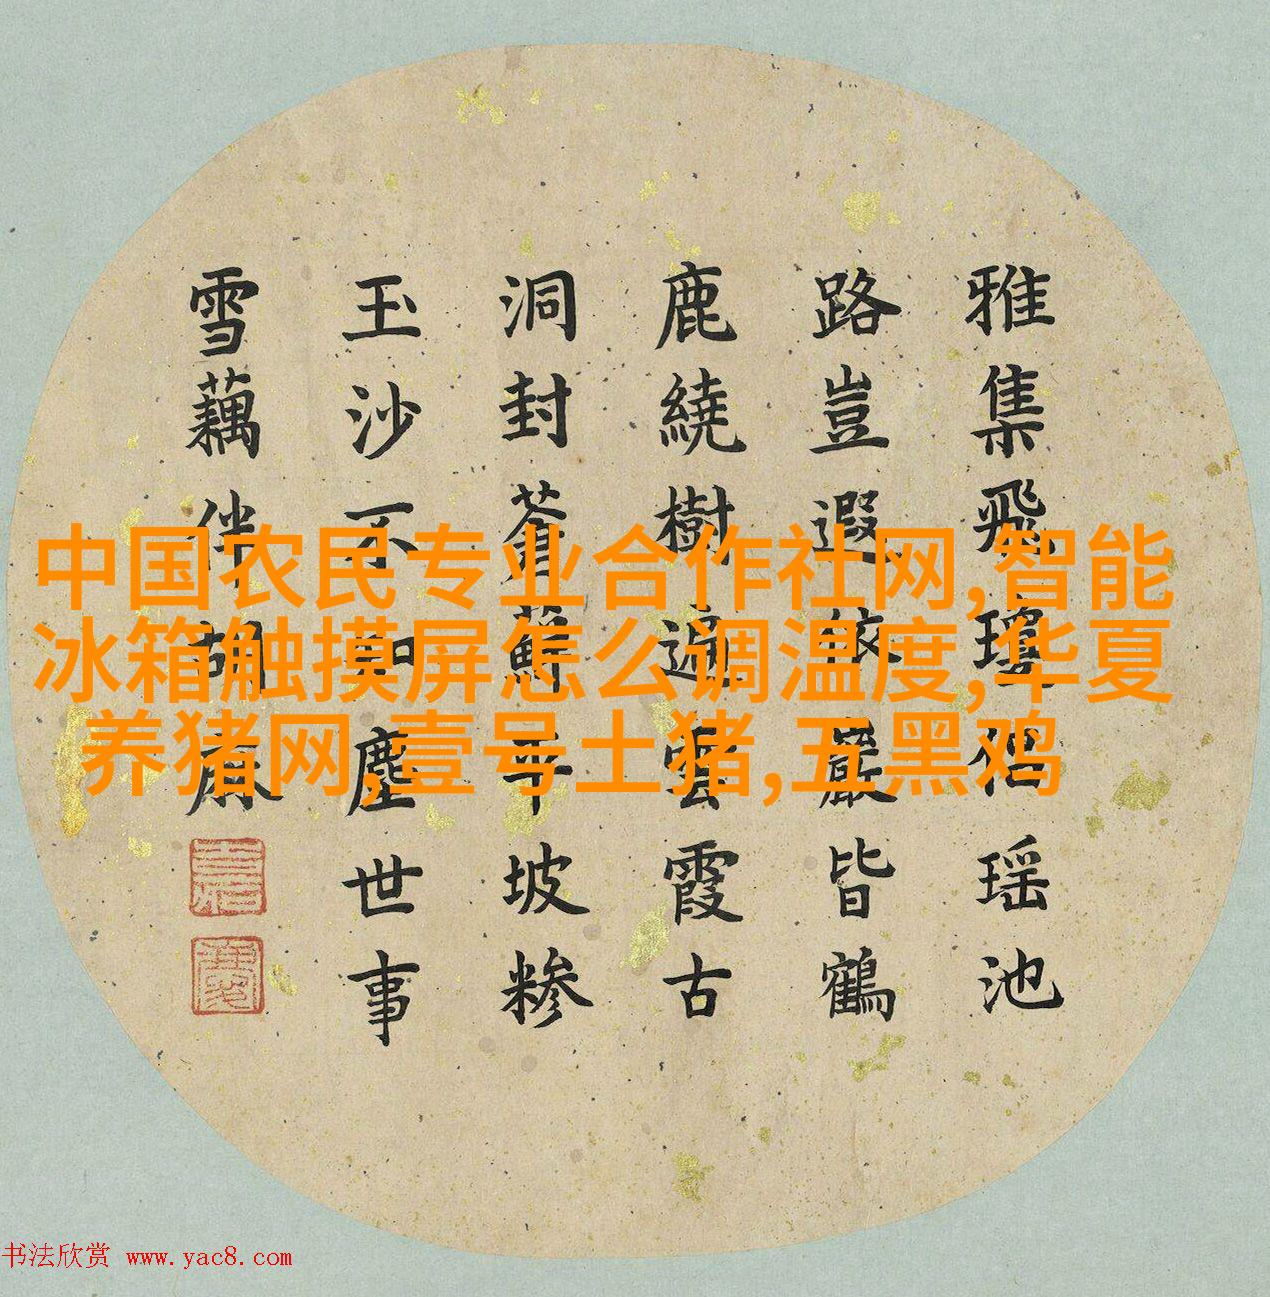 雅集飛瓊侶瑶池
路豈遐依巖皆鶴
鹿繞樹遍雲霞古
洞封蒼蘚平坡糝
玉沙不知塵世事
雪藕伴胡麻
中国农民专业合作社网,智能
冰箱触摸屏怎么调温度,华夏
养猪网,壹号土猪,五黑鸡
书法欣赏 www.yac8.com